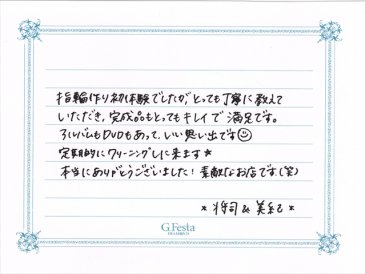 指輪作り初体験でしたが、とっても丁寧に教えて
いただき、完成品もとってもキレイで満足です。
アルバムもDVDもあって、いい思い出です☺
定期的にクリーニングしに来ます★
本当にありがとうございました！素敵なお店です(笑)
*将司&美紀*
G.Festa
DIAMOND